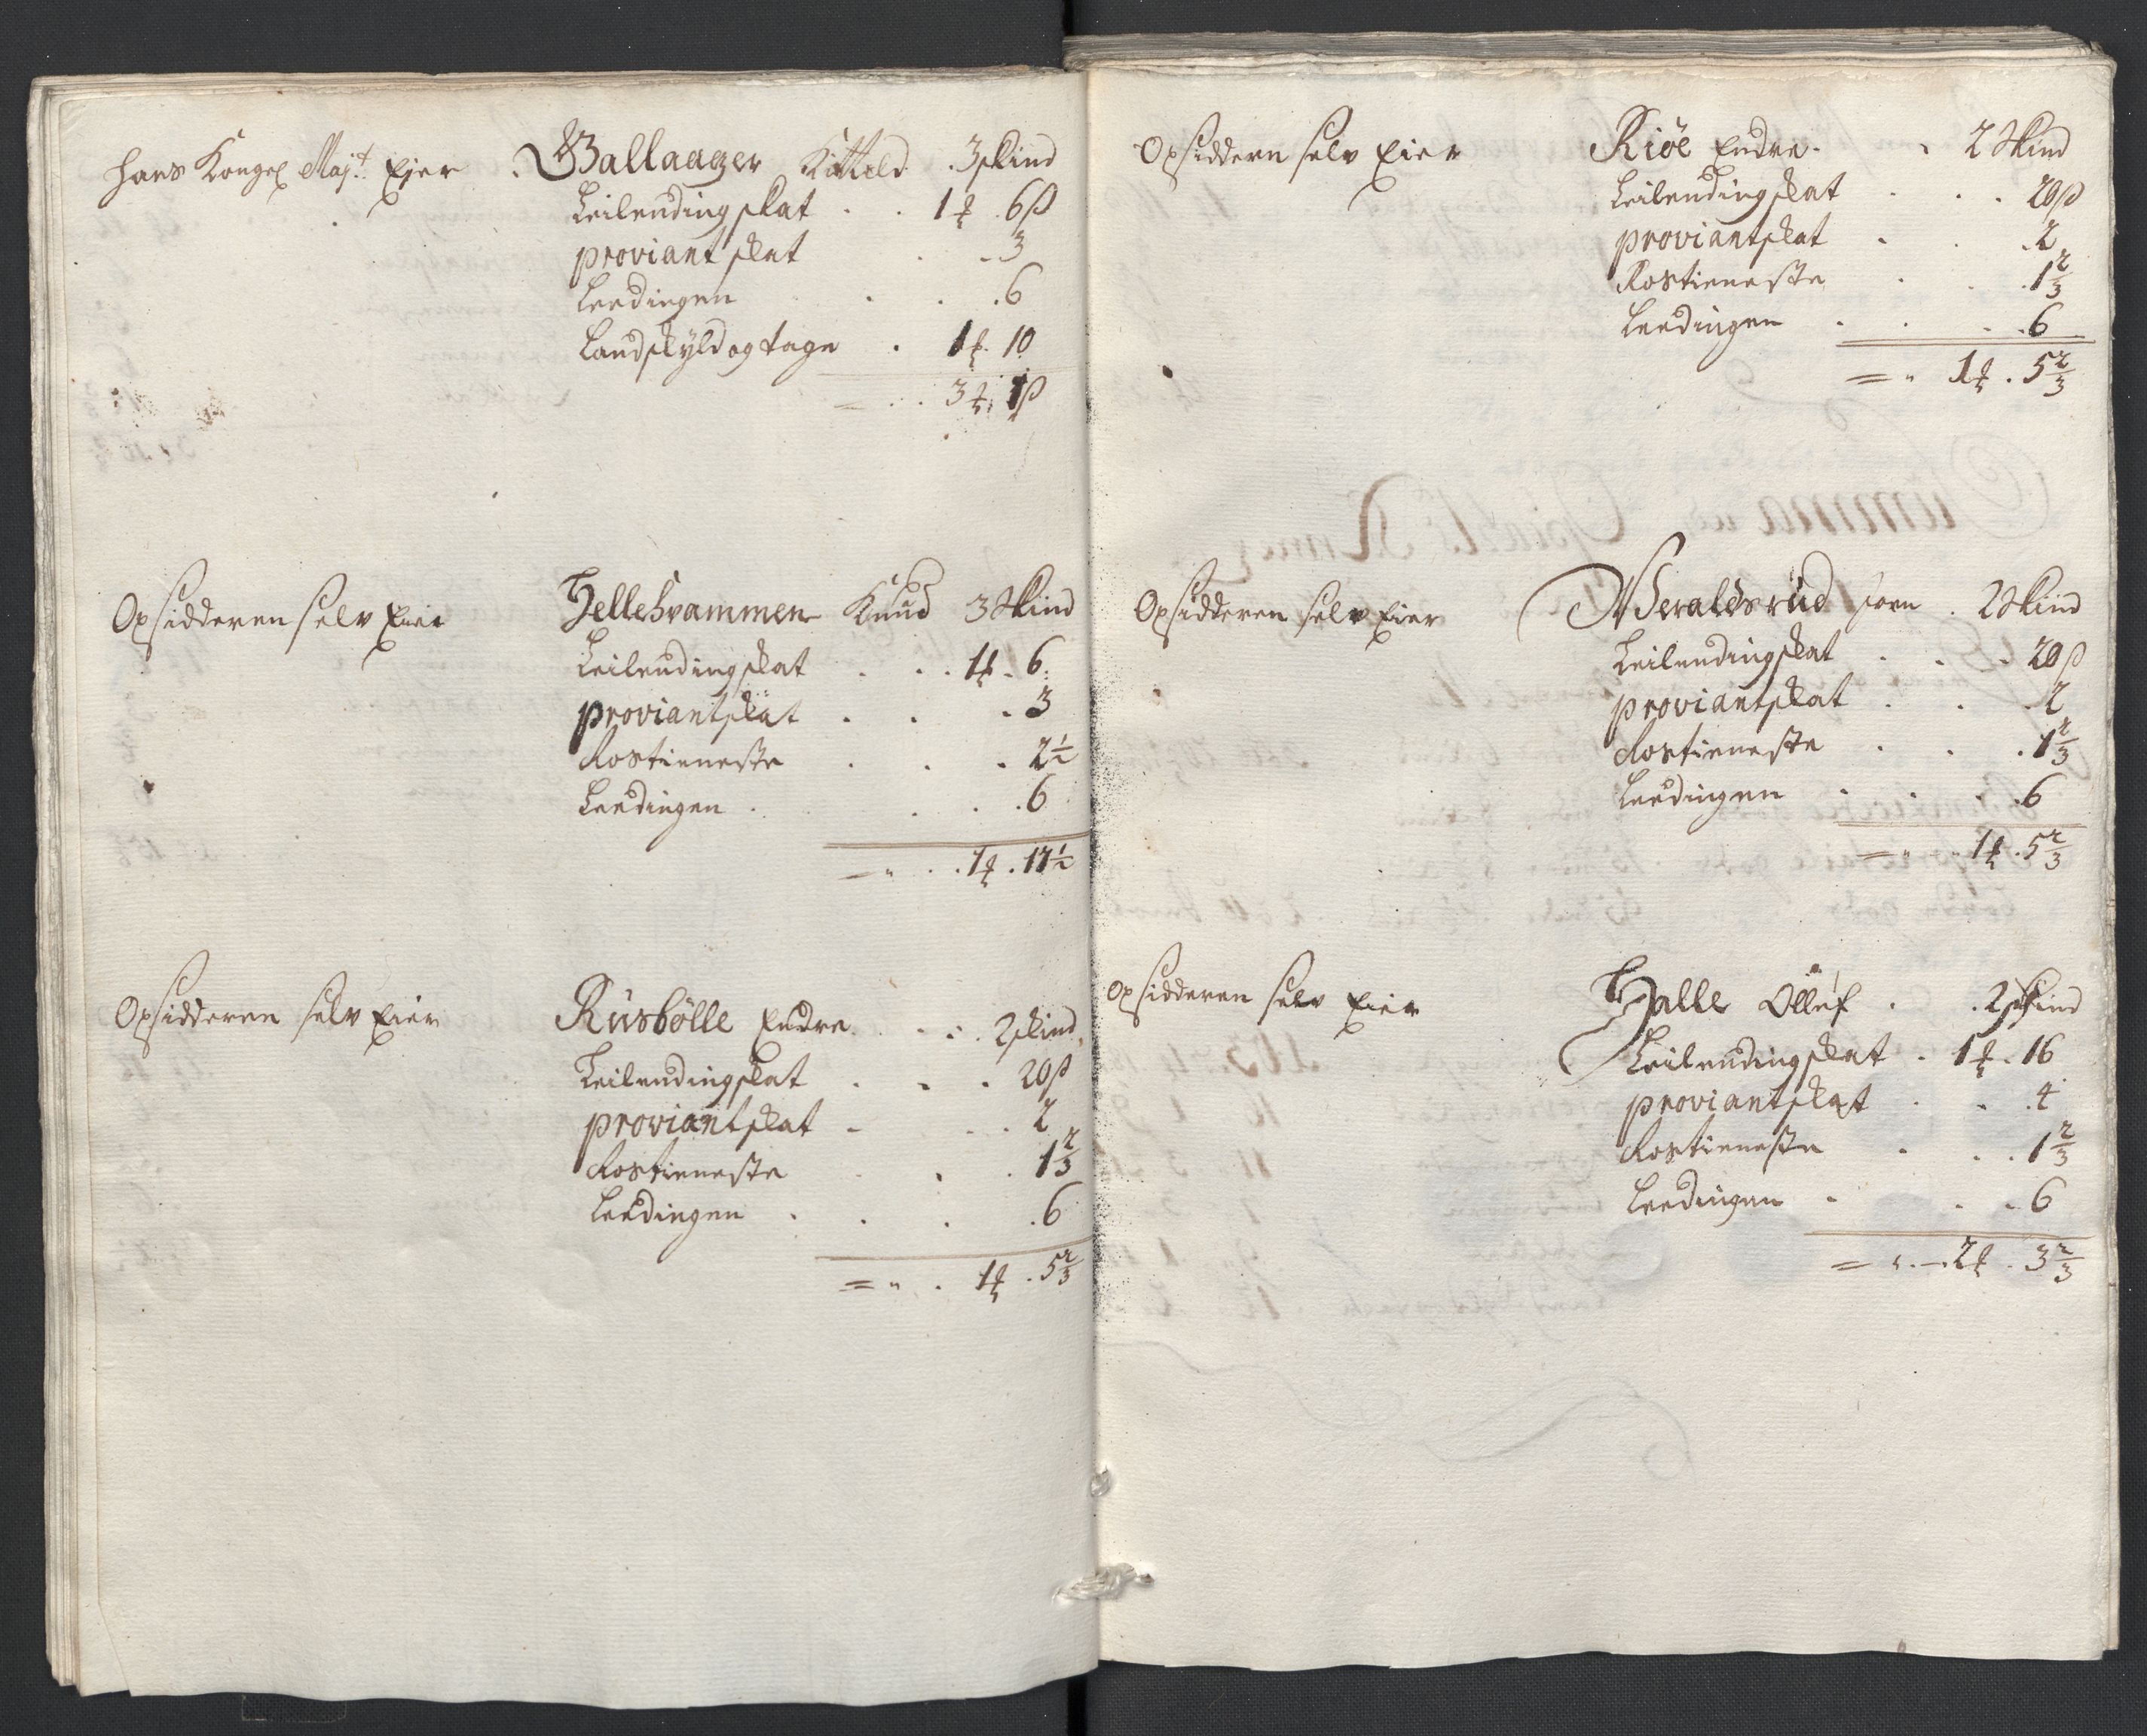 Hans Kongel Mayt. Ejer . Ballaager Kitteld . 3 skind
Leilendingskat . . 1 ƒ . 6 ß
proviantskat . . 3
Leedingen . . . 6
Landskyld og tage . 1 ƒ . 10
= . . 3 ƒ . 1 ß
Opsidderen selv Eier Hellehvammen Knud 3 Skind
Leilendingskat . . . 1 ƒ . 6
proviantskat . . . 3
Rostieneste . . . 2½
Leedingen . . . . 6
= . . 1 ƒ . 17½
Opsidderen selv Eier Rusbölle Endre . . . 2 skind
Leilendingskat . . . 20 ß
proviantskat . . . 2
Rostieneste . . . 1⅔
Leedingen . . . . 6
= " . 1 ƒ . 5⅔
Opsiddern selv Eier Riöe Endre . . 2 Skind
Leilendingskat . . . 20 ß
proviantskat . . . 2
Rostieneste . . . 1⅔
Leedingen . . . . 6
= " 1 ƒ . 5⅔
Opsidderen selv Eier Weraldsrud Joen . 2 Skind
Leilendingskat . . . 20 ß
proviantskat . . . 2
Rostieneste . . . 1⅔
Leedingen . . . . 6
= " . 1 ƒ . 5⅔
Opsidderen selv Eier Halle Olluf . . 2 skind
Leilendingskat . 1 ƒ . 16
proviantskat . . . 4
Rostieneste . . . 1⅔
Leedingen . . . 6
= " . 2 ƒ . 3⅔